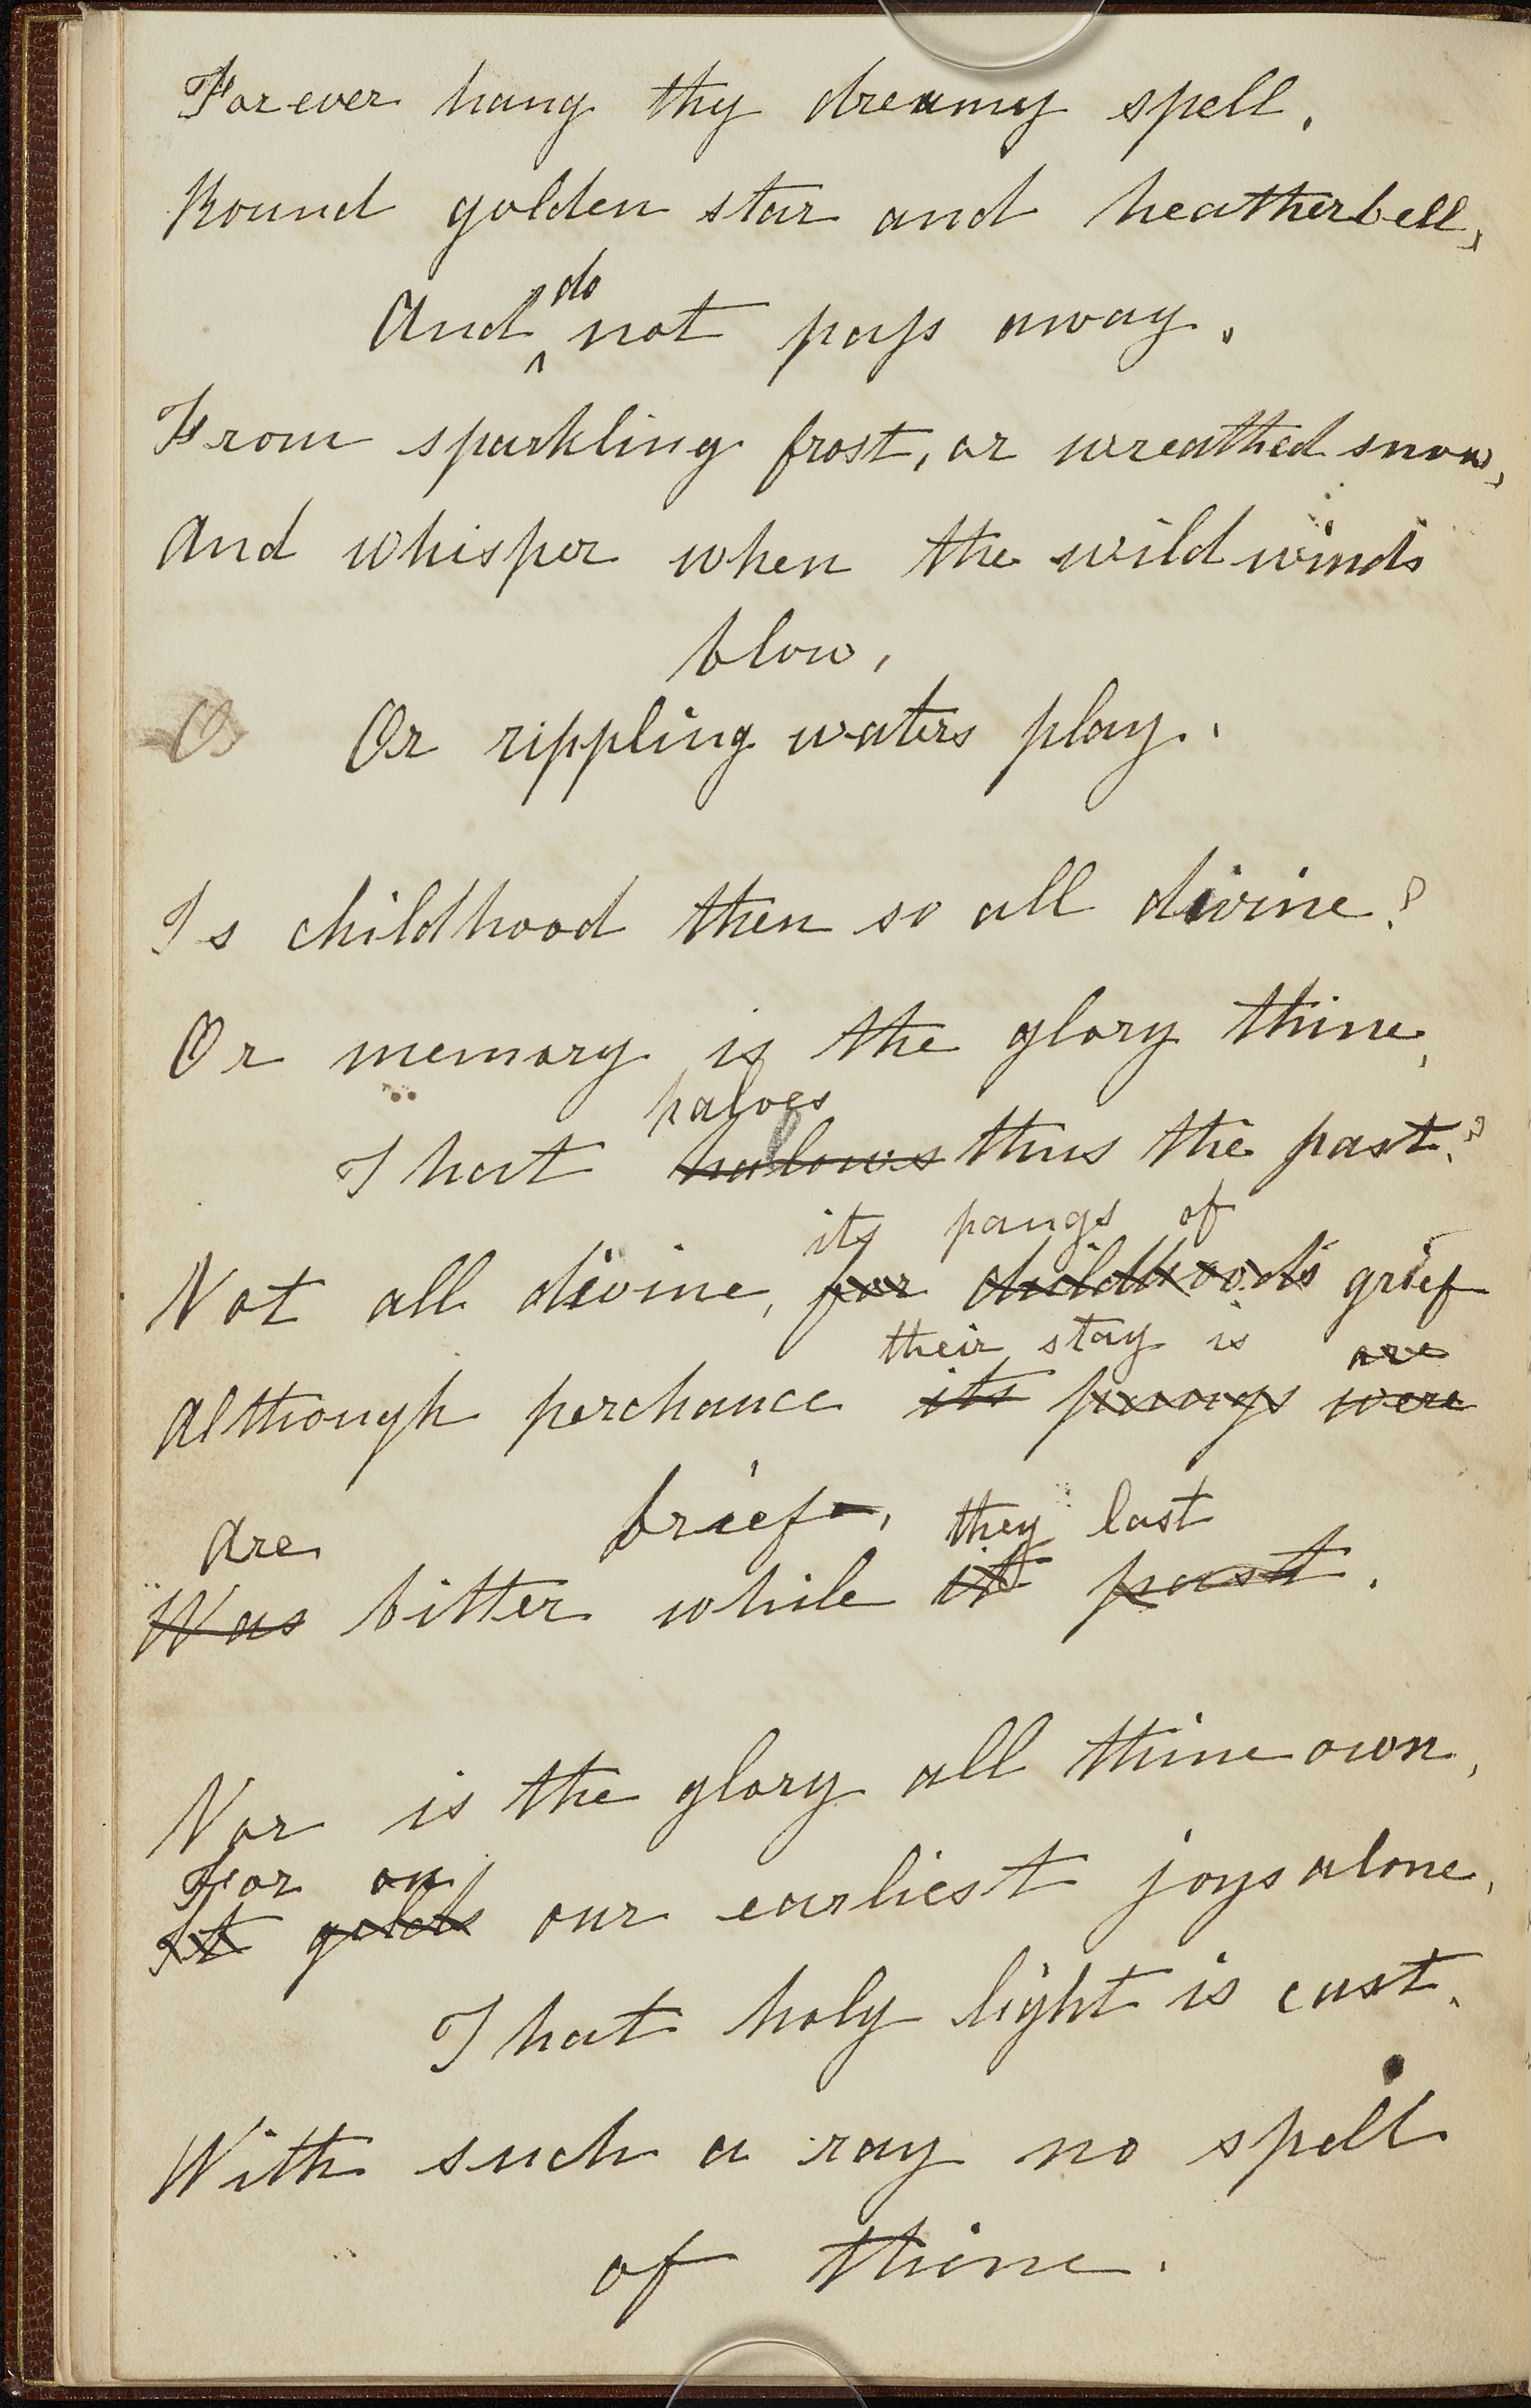 Forever hang thy dreamy spell,
Round golden star and heatherbell,
do
And not pass away,
From sparkling frost, or wreathed snow,
And whisper when the wild winds
blow,
Or Or rippling waters play.
Is childhood then so all divine?
Or memory is the glory thine,
haloes
That halows thus the past?
its pangs of
Not all divine, for childhood's grief
their stay is are
Although perchance its pangs were
brief,
Are they last
Was bitter while it past.
Nor is the glory all thine own,
For on
It gilds our earliest joys alone,
That holy light is cast.
With such a ray no spell
of thine.